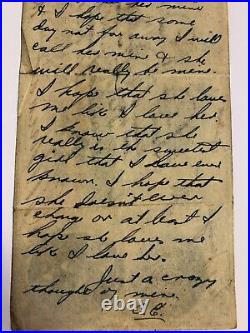 her mine
& I hope that some
day not far away I will
call her mine & she
will really be mine.
I hope that she loves
me like I love her.
I know that she
really is the sweetest
girl that I have ever
known. I hope that
she doesn't ever
change or at least I
hope she loves me
like I love her.
Just a crazy
thought of mine.